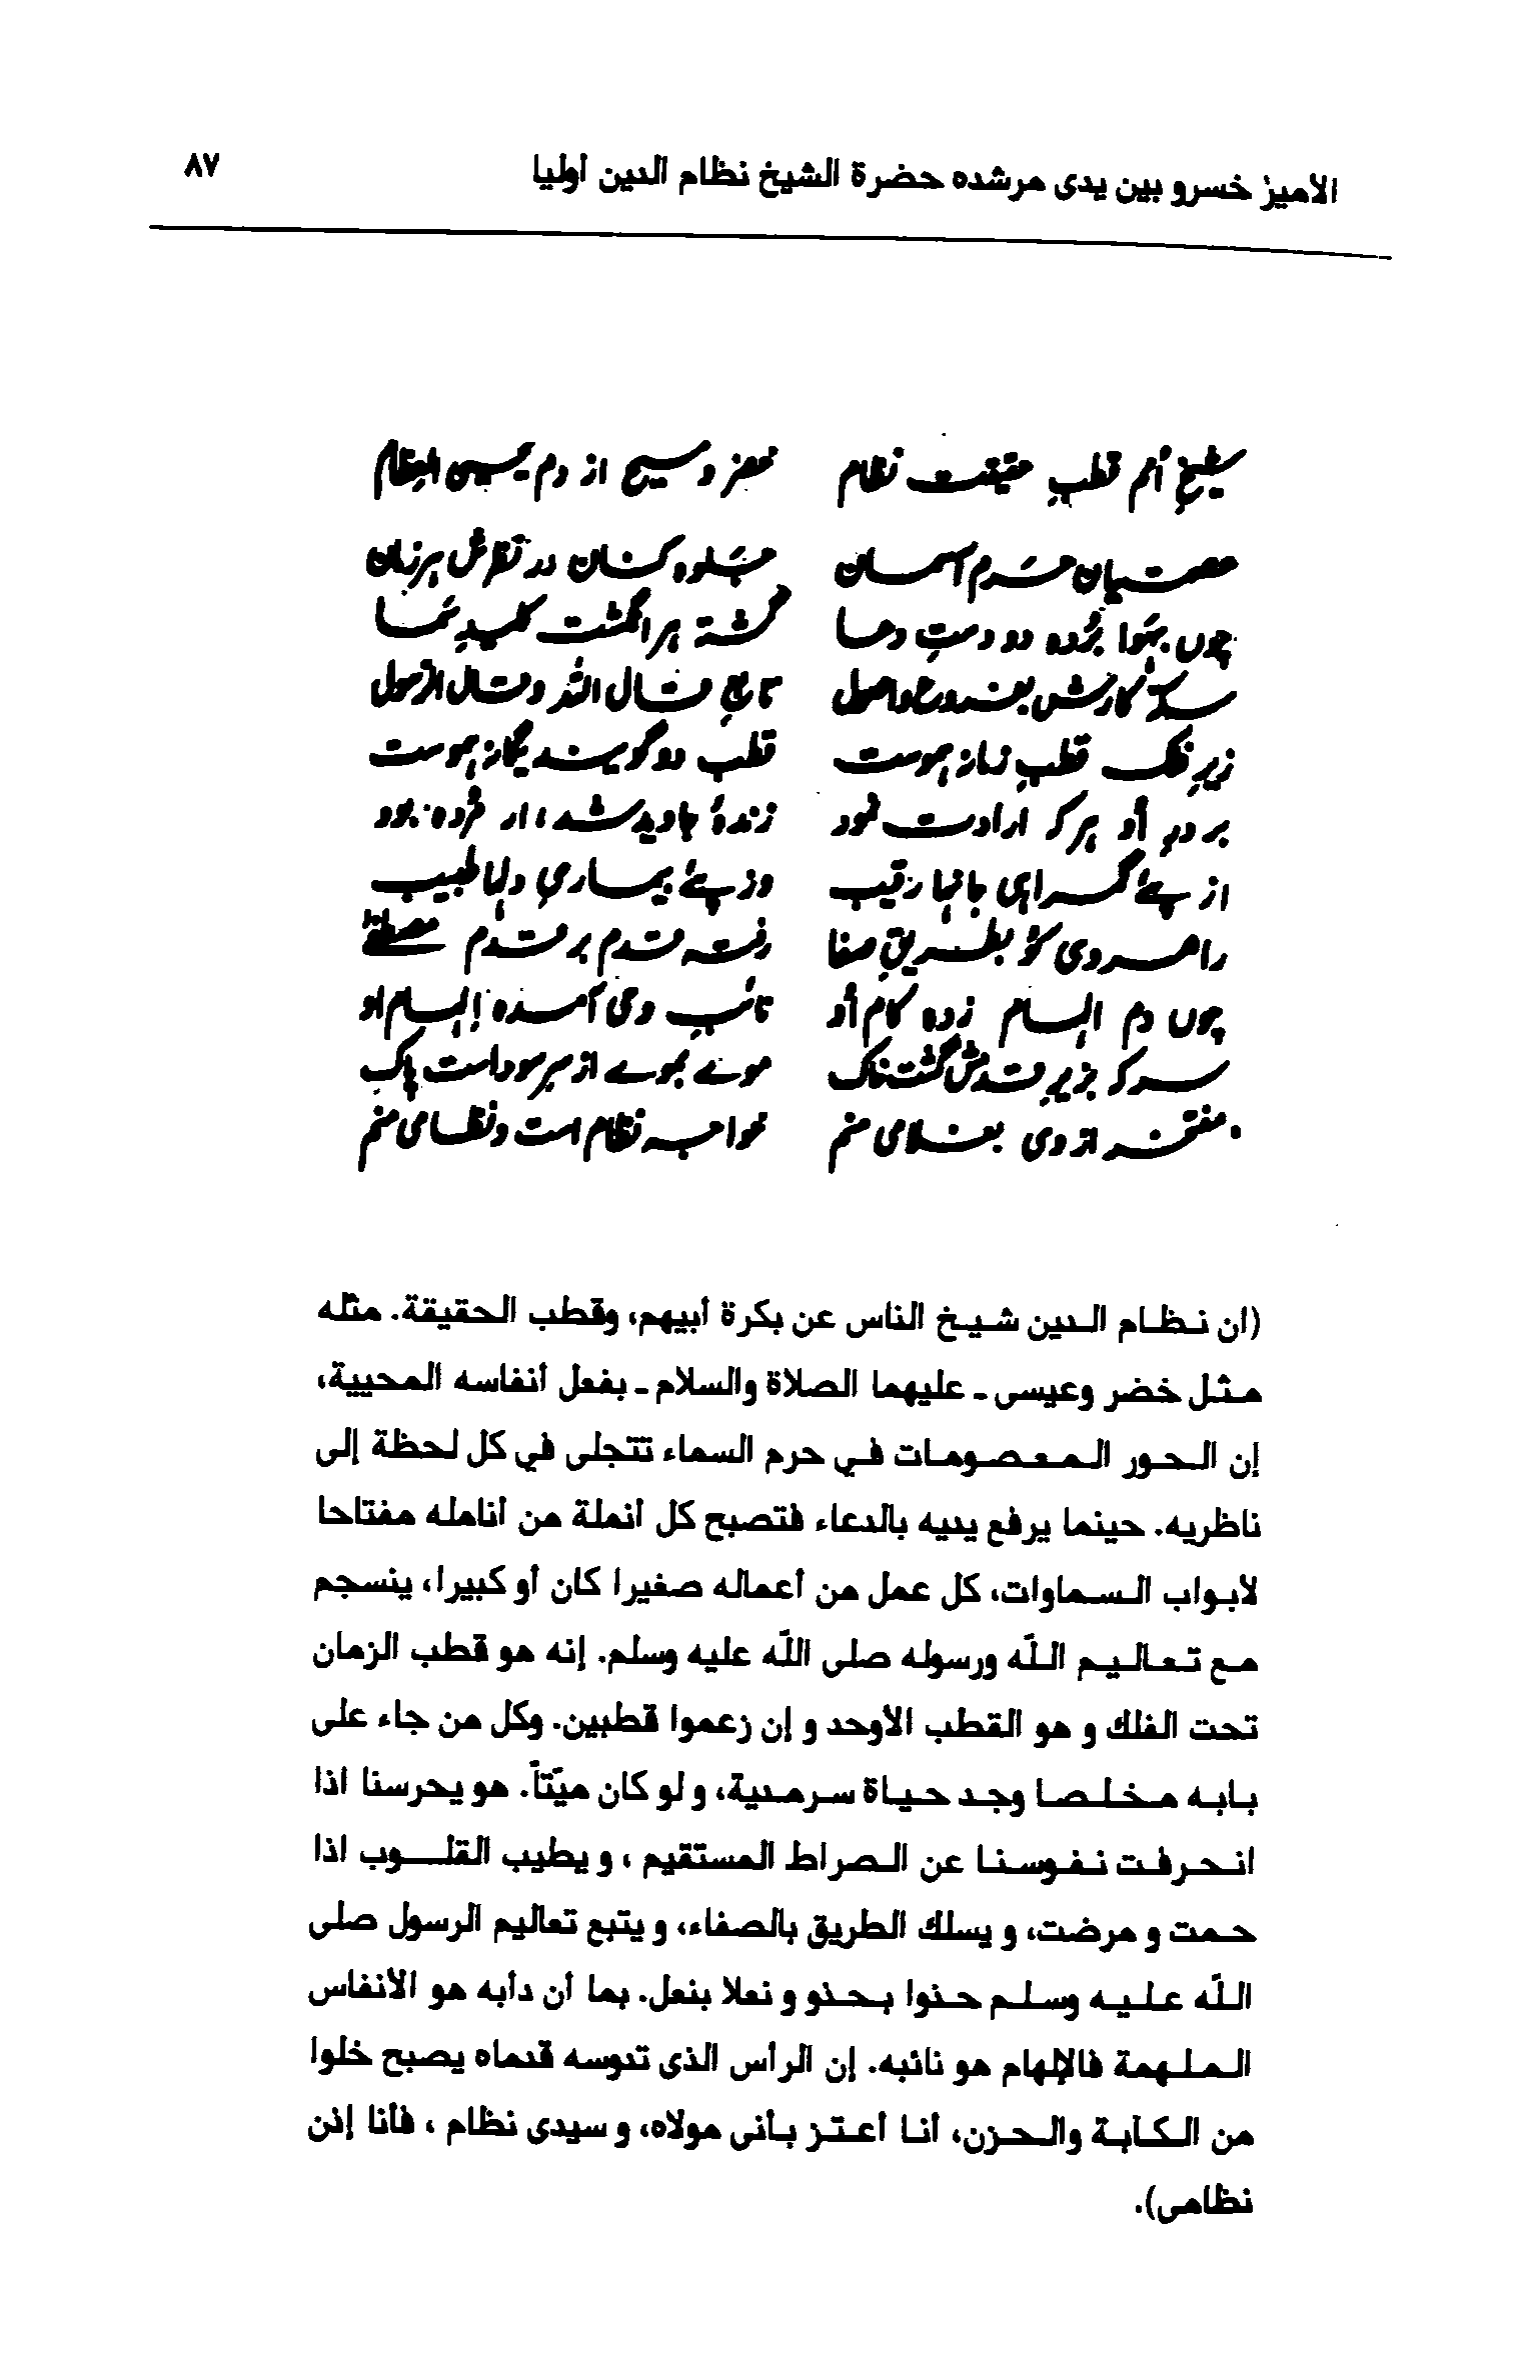 الأميز خسرو بين يدى مرشده حضرة الشيخ نظام الدين أوليا
٨٧
شیخِ أمم قطبِ حقیقت نظام خضر و مسیح از دم یحیی العظام
عصمتیان حرم آسمان جلوه کنان در نظرش هر زمان
چوں بہوا بُرده دو دستِ دعا گشتہ ہر انگشت کلیدِ سما
سکۂ کارش بفروع واصول تابعِ قال اللہ وقال الرسول
زیرِ فلک قطبِ زمانہ ہموست قطب دو گویند یگانہ ہموست
بر درِ أو ہر کہ ارادت نمود زندۂ جاوید شد، ار مُرده بود
از پئے گمراہی جانہا رقیب وز پئے بیماریِ دلہا طبیب
راهروی کو بطریقِ صفا رفتہ قدم بر قدم مصطفےٰ
چوں دم الہام زده کام أو نائبِ وحی آمده إلہام او
سر کہ بزیرِ قدمش گشت خاک موے بموے از سرِ سوداست پاک
مفتخر از وی بغلامی منم خواجہ نظام است ونظامی منم
(ان نظام الدين شيخ الناس عن بكرة أبيهم، وقطب الحقيقة. مثله
مثل خضر وعيسى - عليهما الصلاة والسلام - بفعل أنفاسه المحيية،
إن الحور المعصومات في حرم السماء تتجلى في كل لحظة إلى
ناظريه. حينما يرفع يديه بالدعاء فتصبح كل أنملة من أنامله مفتاحا
لابواب السماوات، كل عمل من أعماله صغيرا كان أو كبيرا، ينسجم
مع تعاليم اللّه ورسوله صلى اللّه عليه وسلم. إنه هو قطب الزمان
تحت الفلك و هو القطب الأوحد و إن زعموا قطبين. وكل من جاء على
بابه مخلصا وجد حياة سرمدية، و لو كان ميّتاً. هو يحرسنا اذا
انحرفت نفوسنا عن الصراط المستقيم ، و يطيب القلوب اذا
حمت و مرضت، و يسلك الطريق بالصفاء، و يتبع تعاليم الرسول صلى
اللّه عليه وسلم حذوا بحذو و نعلا بنعل. بما أن دأبه هو الأنفاس
الملهمة فالإلهام هو نائبه. إن الرأس الذى تدوسه قدماه يصبح خلوا
من الكآبة والحزن، أنا أعتز بأنى مولاه، و سيدى نظام ، فأنا إذن
نظامى).